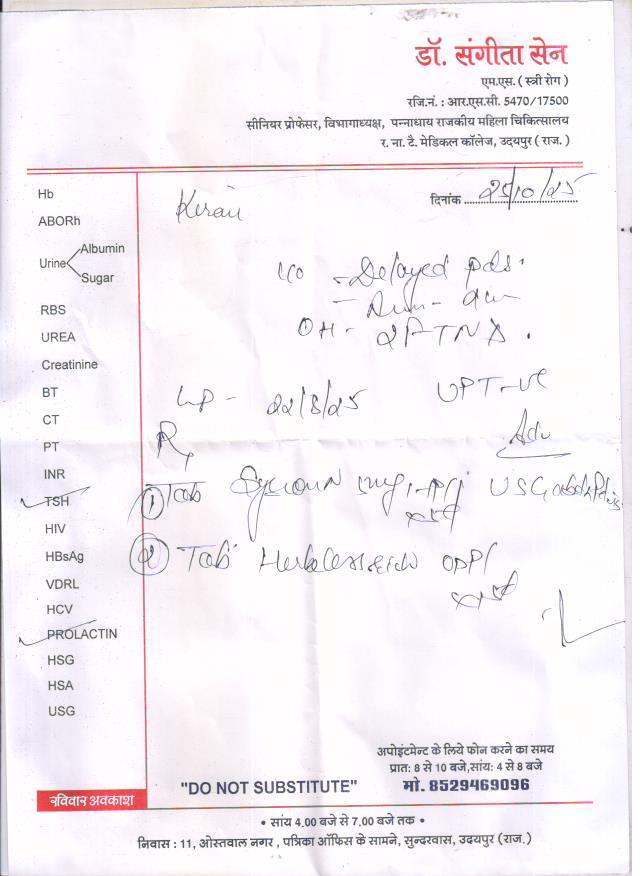 डॉ. संगीता सेन
एम.एस. ( स्त्री रोग )
रजि.नं. : आर.एस.सी. 5470/17500
सीनियर प्रोफेसर, विभागाध्यक्ष, पन्नाधाय राजकीय महिला चिकित्सालय
र. ना. टै. मेडिकल कॉलेज, उदयपुर ( राज. )
दिनांक 25/10/25
Kiran
Hb
ABORh
Urine Albumin
Sugar
RBS
UREA
Creatinine
BT
CT
PT
INR
TSH
HIV
HBsAg
VDRL
HCV
PROLACTIN
HSG
HSA
USG
- Delayed pds.
OH - 2FTND.
LMP - 22/8/25 UPT-ve
Rx Adv
① Tab 5mg USG
② Tab
अपोइंटमेन्ट के लिये फोन करने का समय
प्रातः 8 से 10 बजे,सांयः 4 से 8 बजे
मो. 8529469096
"DO NOT SUBSTITUTE"
रविवार अवकाश
• सांय 4.00 बजे से 7.00 बजे तक •
निवास : 11, ओस्तवाल नगर , पत्रिका ऑफिस के सामने, सुन्दरवास, उदयपुर (राज.)